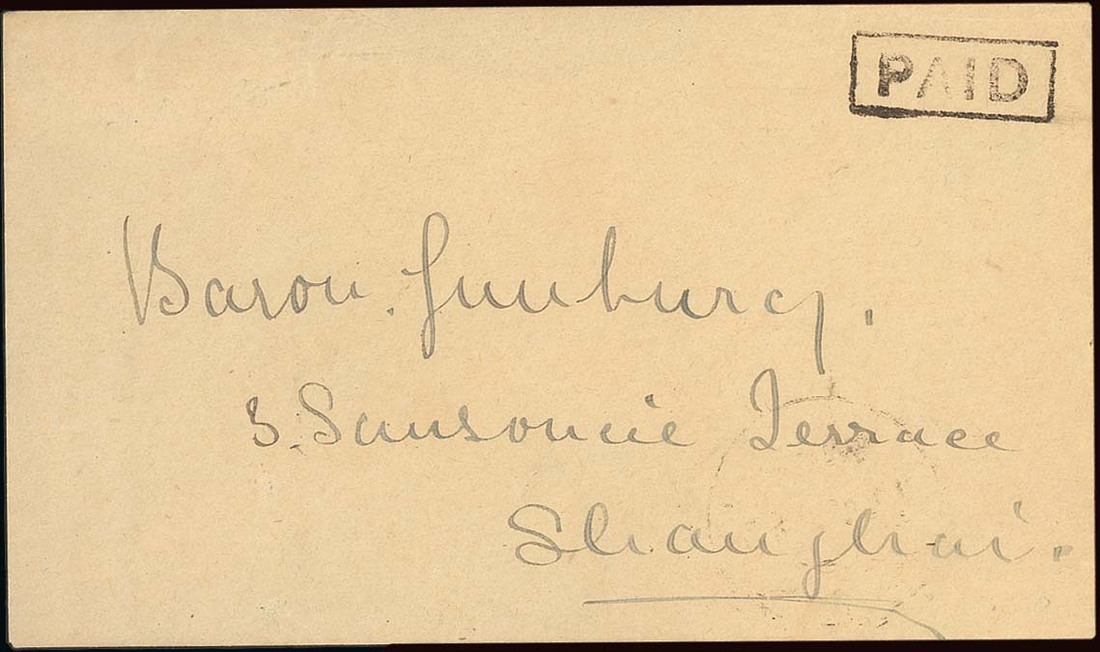 PAID
Baron. Gunburg.
3. Sansoucie Terrace
Shanghai.